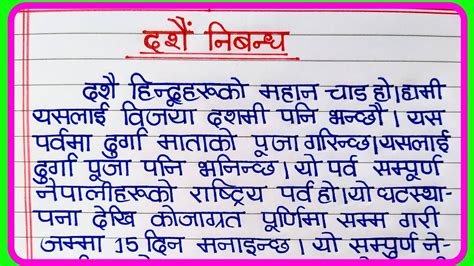 दशैं निबन्ध
दशै हिन्दूहरूको महान चाड हो।हामी
यसलाई विजया दशमी पनि भन्छौ । यस
पर्वमा दुर्गा माताको पूजा गरिन्छ।यसलाई
दुर्गा पूजा पनि भनिन्छ । यो पर्व सम्पूर्ण
नेपालीहरूको राष्ट्रिय पर्व हो।यो घटस्था-
पना देखि कोजाग्रत पूर्णिमा सम्म गरी
जम्मा 15 दिन मनाइन्छ । यो सम्पुर्ण ने-